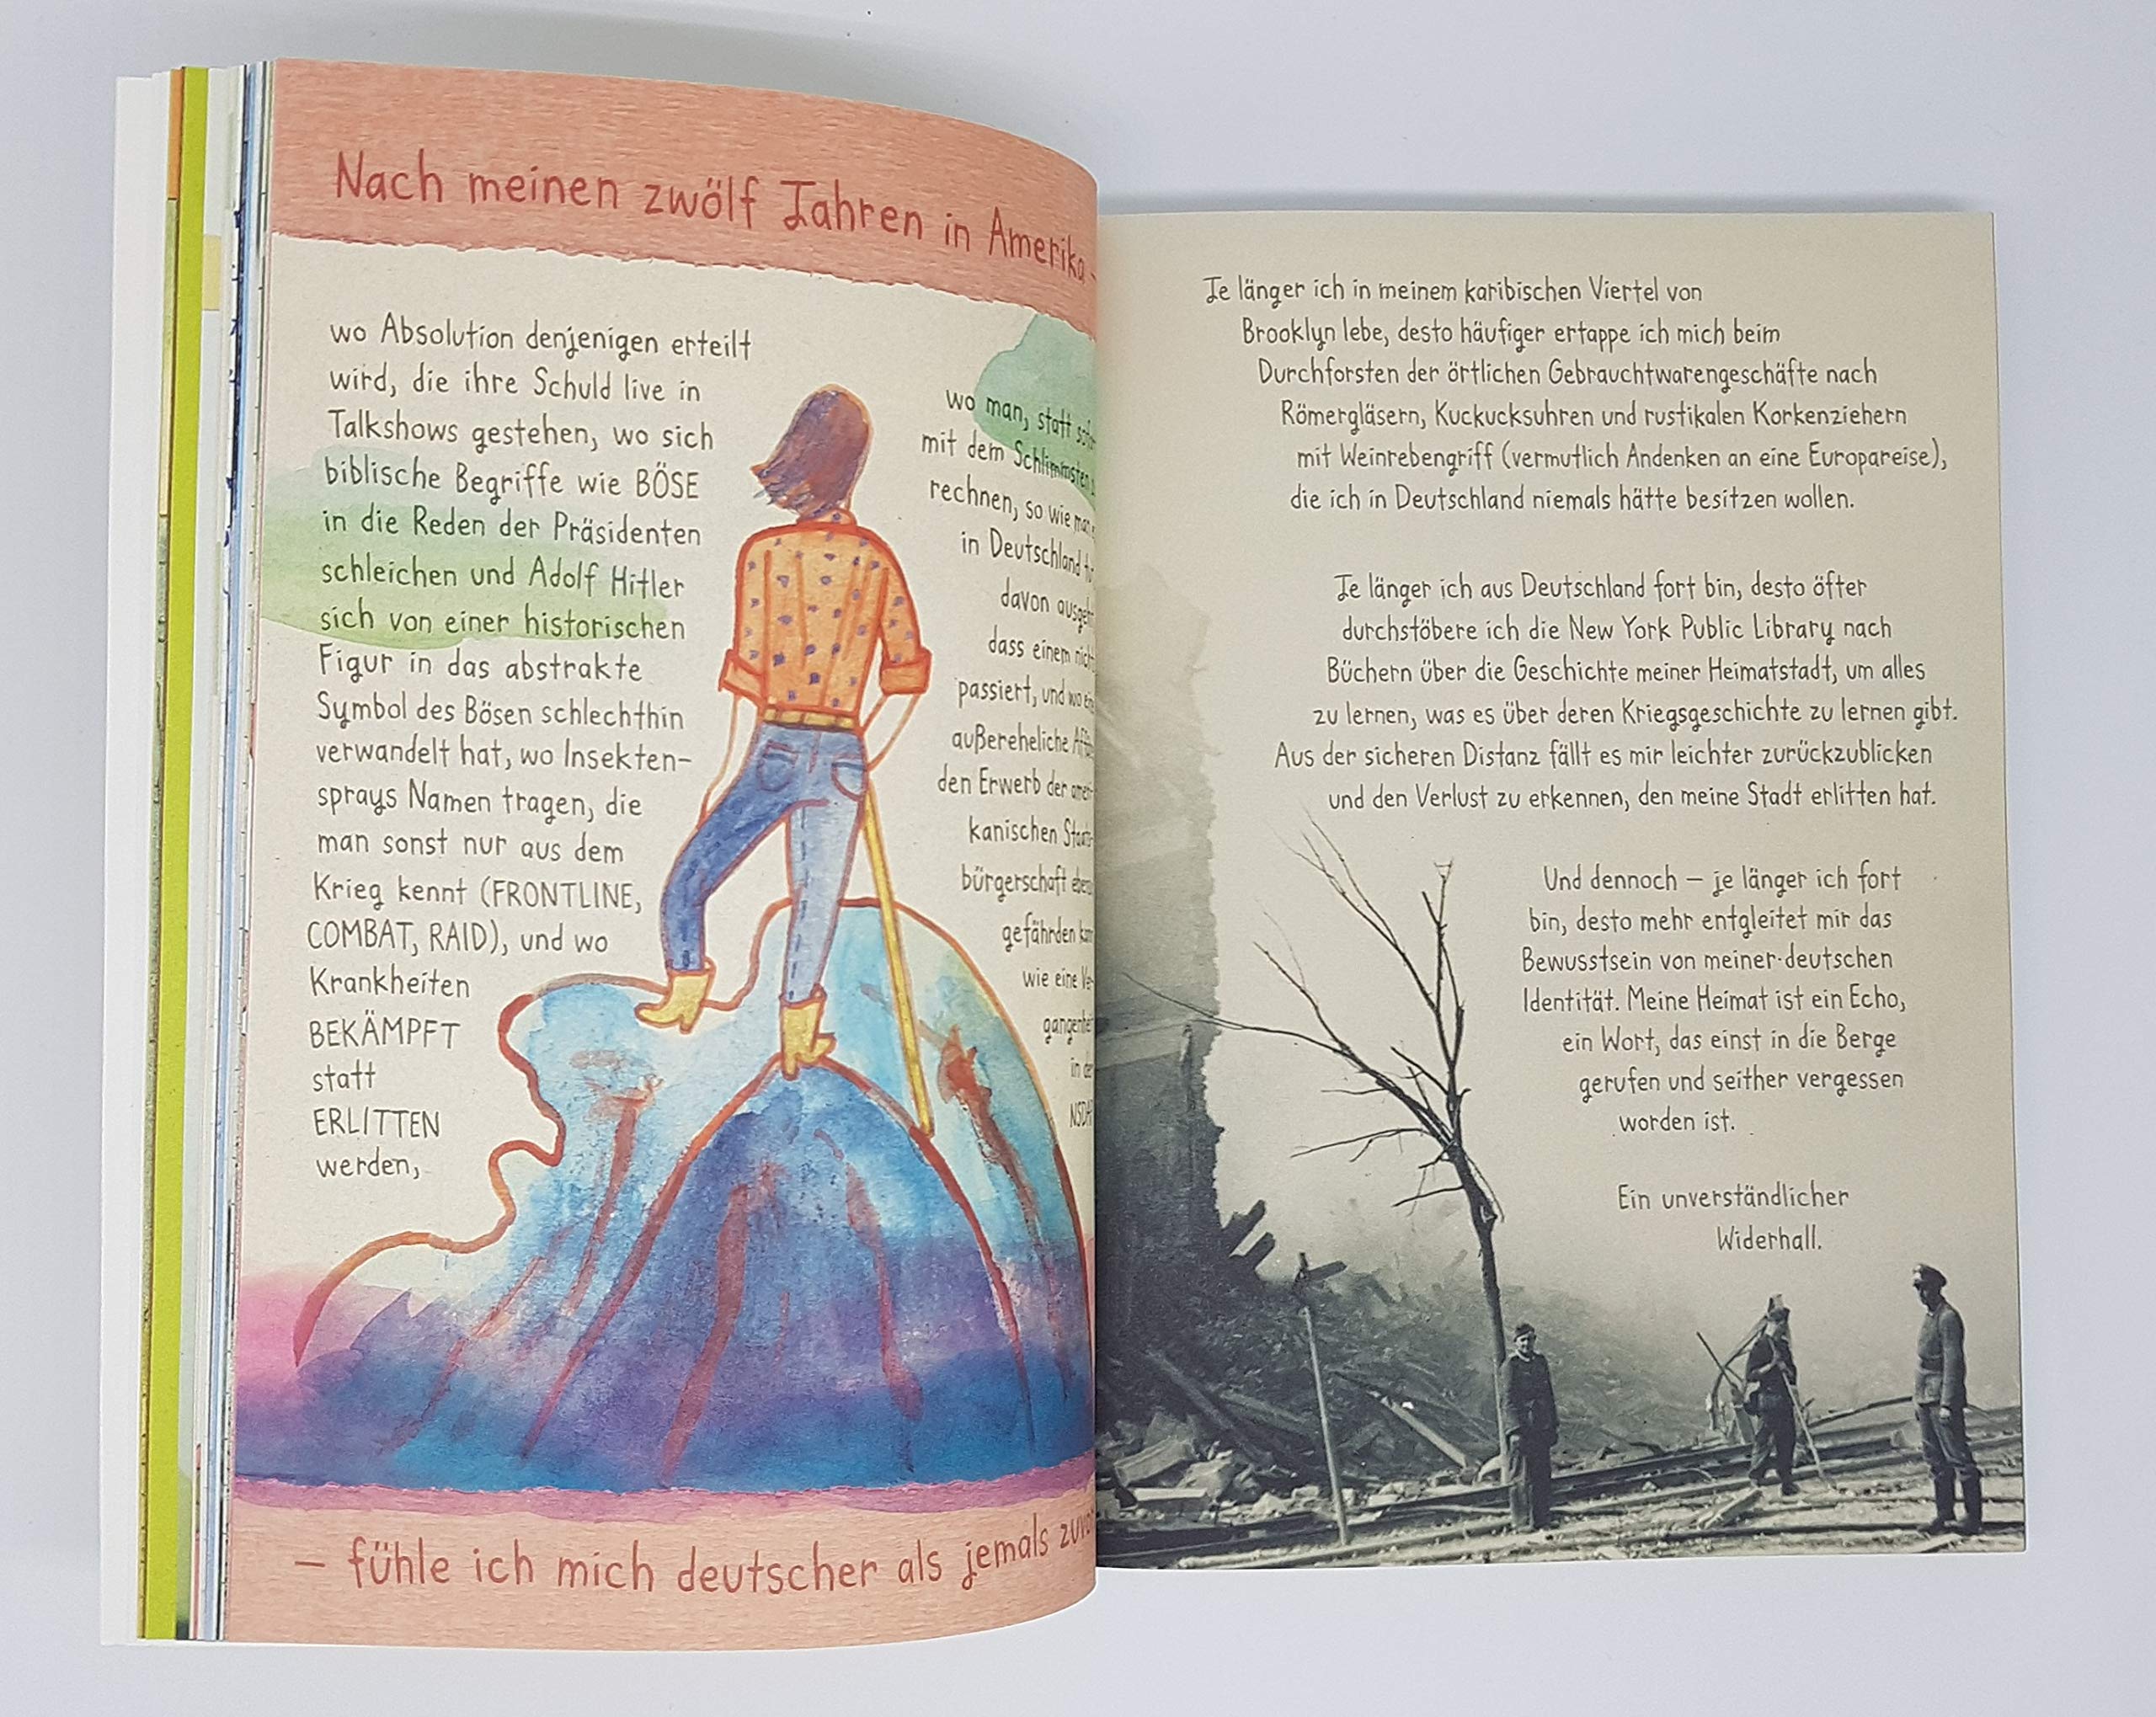 Nach meinen zwölf Jahren in Amerika –
wo Absolution denjenigen erteilt
wird, die ihre Schuld live in
Talkshows gestehen, wo sich
biblische Begriffe wie BÖSE
in die Reden der Präsidenten
schleichen und Adolf Hitler
sich von einer historischen
Figur in das abstrakte
Symbol des Bösen schlechthin
verwandelt hat, wo Insekten-
sprays Namen tragen, die
man sonst nur aus dem
Krieg kennt (FRONTLINE,
COMBAT, RAID), und wo
Krankheiten
BEKÄMPFT
statt
ERLITTEN
werden,
wo man, statt
mit dem Schlimmsten
rechnen, so wie man
in Deutschland
davon
dass einem
passiert, und wo
außereheliche
den Erwerb der ameri-
kanischen Staats-
bürgerschaft
gefährden
wie eine Ver-
gangenheit
in der
– fühle ich mich deutscher als jemals
Je länger ich in meinem karibischen Viertel von
Brooklyn lebe, desto häufiger ertappe ich mich beim
Durchforsten der örtlichen Gebrauchtwarengeschäfte nach
Römergläsern, Kuckucksuhren und rustikalen Korkenziehern
mit Weinrebengriff (vermutlich Andenken an eine Europareise),
die ich in Deutschland niemals hätte besitzen wollen.
Je länger ich aus Deutschland fort bin, desto öfter
durchstöbere ich die New York Public Library nach
Büchern über die Geschichte meiner Heimatstadt, um alles
zu lernen, was es über deren Kriegsgeschichte zu lernen gibt.
Aus der sicheren Distanz fällt es mir leichter zurückzublicken
und den Verlust zu erkennen, den meine Stadt erlitten hat.
Und dennoch – je länger ich fort
bin, desto mehr entgleitet mir das
Bewusstsein von meiner deutschen
Identität. Meine Heimat ist ein Echo,
ein Wort, das einst in die Berge
gerufen und seither vergessen
worden ist.
Ein unverständlicher
Widerhall.